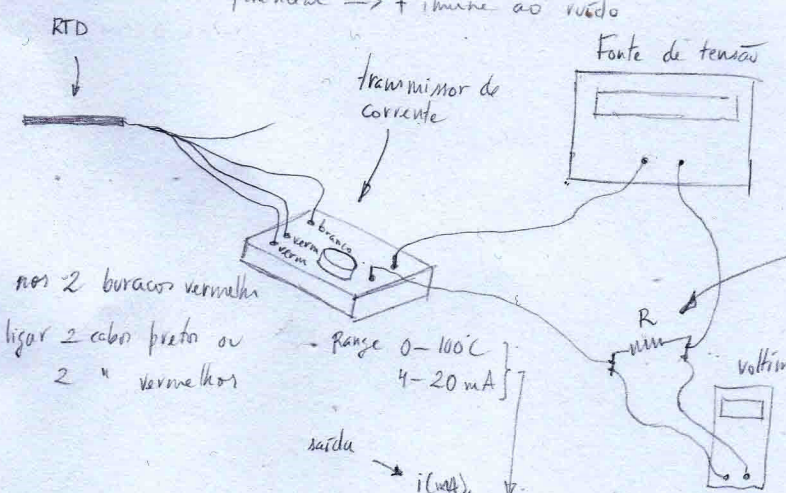 → + imune ao ruído
RTD
transmissor de
corrente
Fonte de tensão
branco
verm
verm
nos 2 buracos vermelh
ligar 2 cabos pretos ou
2 " vermelhos
Range 0-100°C
4-20 mA
R
voltím
saída
i(mA)